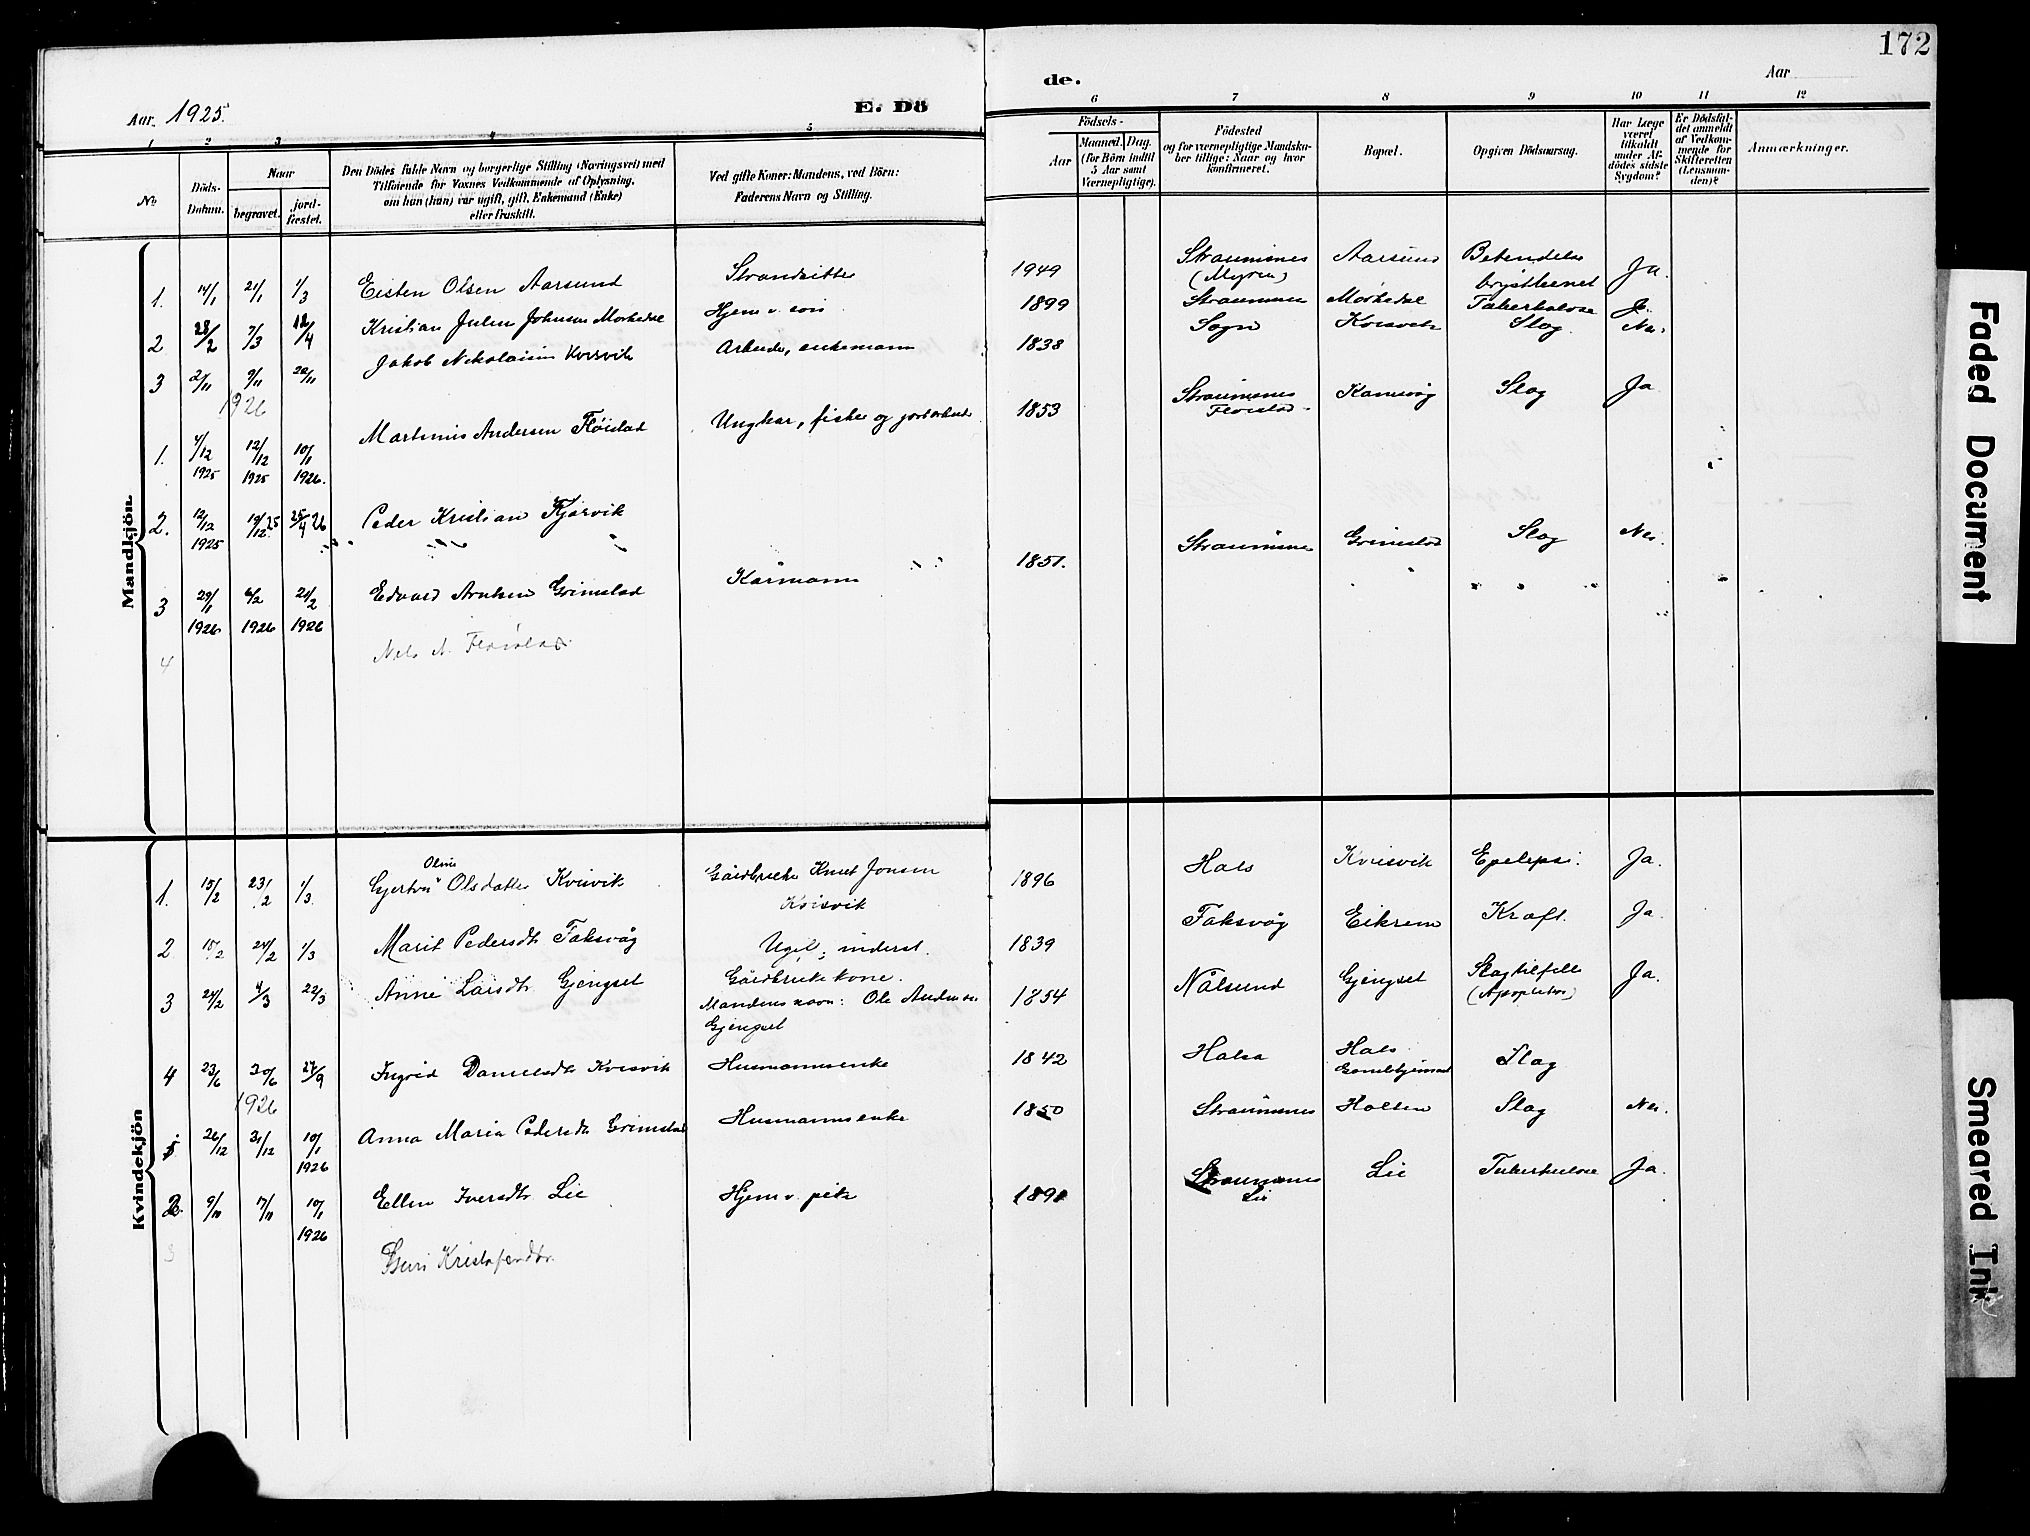 172
Aar. 1925.
E. Dö
de.
Aar
1 2 3 4 5 6 7 8 9 10 11 12
No
Döds-
Datum.
Naar
begravet.
jord-
fæstet.
Den Dödes fulde Navn og borgerlige Stilling (Næringsvei) med
Tilföiende for Voxnes Vedkommende af Oplysning,
om han (hun) var ugift, gift, Enkemand (Enke)
eller fraskilt.
Ved gifte Koner: Mandens, ved Börn:
Faderens Navn og Stilling.
Födsels-
Aar
Maaned. Dag.
(for Börn indtil
5 Aar samt
Værnepligtige).
Födested
og for værnepligtige Mandska-
ber tillige: Naar og hvor
konfirmeret.
Bopæl.
Opgiven Dödsaarsag.
Har Læge
været
tilkaldt
under Af-
dödes sidste
Sygdom?
Er Dödsfal-
det anmeldt
af Vedkom-
mende for
Skifteretten
(Lensman-
den)?
Anmærkninger.
Mandkjön
1. 14/1 21/1 1/3 Eisten Olsen Aarsund Strandsitte 1949 Straumsnes (Myren) Aarsund Betendelse brysthinnet Ja.
2 28/2 7/3 12/4 Kristian Julin Johnsen Morkedal Hjem v. son 1899 Straumsnes Morkedal Tuberkulose Ja
3 2/11 9/11 22/11 Jakob Nikolaisen Korsvik Arbeider, enkemann 1838 Sogn Korsvik Slag. Nei
1926
1. 4/12 1925 12/12 1925 10/1 1926. Martinus Andersen Flöistad Ungkar, fisker og jordarbeide 1853 Straumsnes Floistad Kanesvåg Slag Ja
2. 12/12 1925 19/12 25 25/4 26 Peder Kristian Kjørvik
3 29/1 1926 6/2 1926 21/2 1926 Edvard Arntsen Grimstad Kårmann 1851. Straumsnes Grimstad Slag Nei.
4 Nels A. Floistad
Kvindekjön
1. 15/2 23/2 1/3. Gjertru Oline Olsdatter Kvisvik Gårdbruker Knut Jonsen Kvisvik 1896 Hals Kvisvik Epilepsi. Ja.
2 15/2 24/2 1/3 Marit Pedersdt. Taksvåg Ugift, inderst. 1839 Taksvåg Eikrem Kræft. Ja.
3 24/2 4/3 22/3 Anne Larsdtr Gjengset Gårdbruker kone. Mandens navn: Ole Andersen Gjengset 1854 Nålsund Gjengset Slagtilfell (Apopleksi) Ja.
4 23/6 30/6 27/9 Ingrid Danielsdtr Kvisvik Husmannsenke 1842 Halsa Hals Gamlehjemmet Slag
1926
1 26/12 31/12 10/1 1926 Anna Maria Pedersdtr Grimstad Husmannsenke 1850 Straumsnes Holten Slag Nei.
2. 9/11 17/11 10/1 1926 Ellen Iversdtr. Lie Hjem v. pike 1891 Straumsnes Lie Lie Tuberkulose Ja.
3 Guri Kristofersdtr.
Faded Document
Smeared Ink